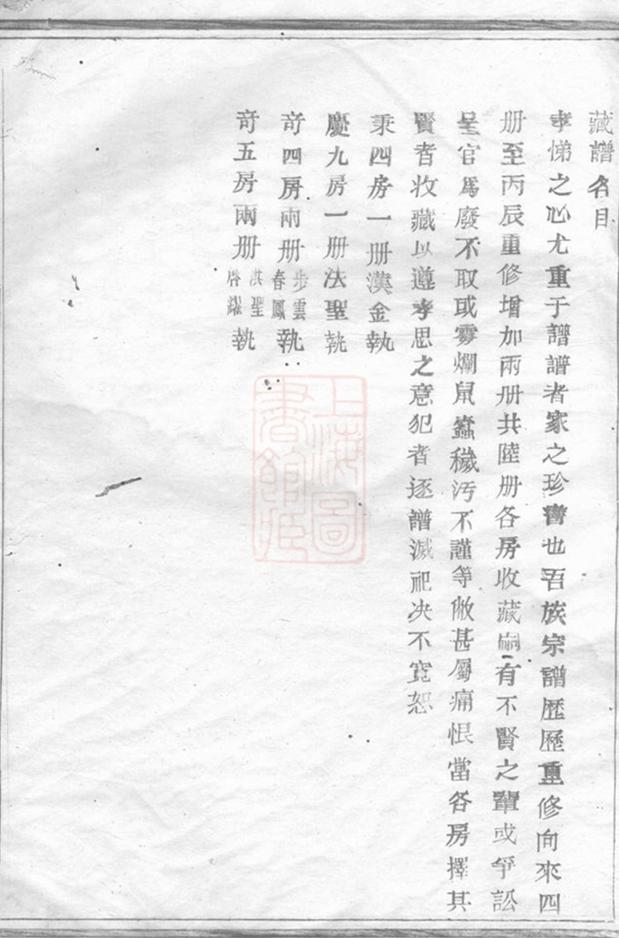 藏譜名目
孝悌之心尤重于譜譜者家之珍書也吾族宗譜歷歷重修向來四
册至丙辰重修增加兩册共陸册各房收藏嗣有不賢之輩或爭訟
呈官爲廢不取或霉爛鼠蠧穢汚不謹等敝甚屬痛恨當各房擇其
賢者收藏以遵孝思之意犯者逐譜滅祀决不寛恕
秉四房一册漢金執
慶九房一册法聖執
竒四房兩册步雲春鳳執
竒五房兩册洪聖啓耀執
上海圖書館藏